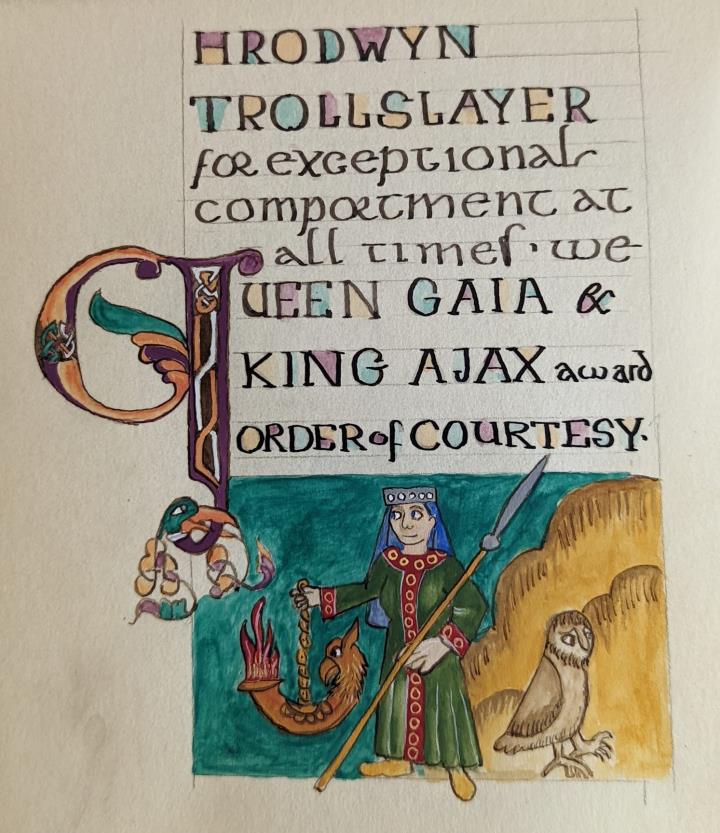 HRODWYN
TROLLSLAYER
for exceptional
comportment at
all times · we
QUEEN GAIA &
KING AJAX award
ORDER of COURTESY.